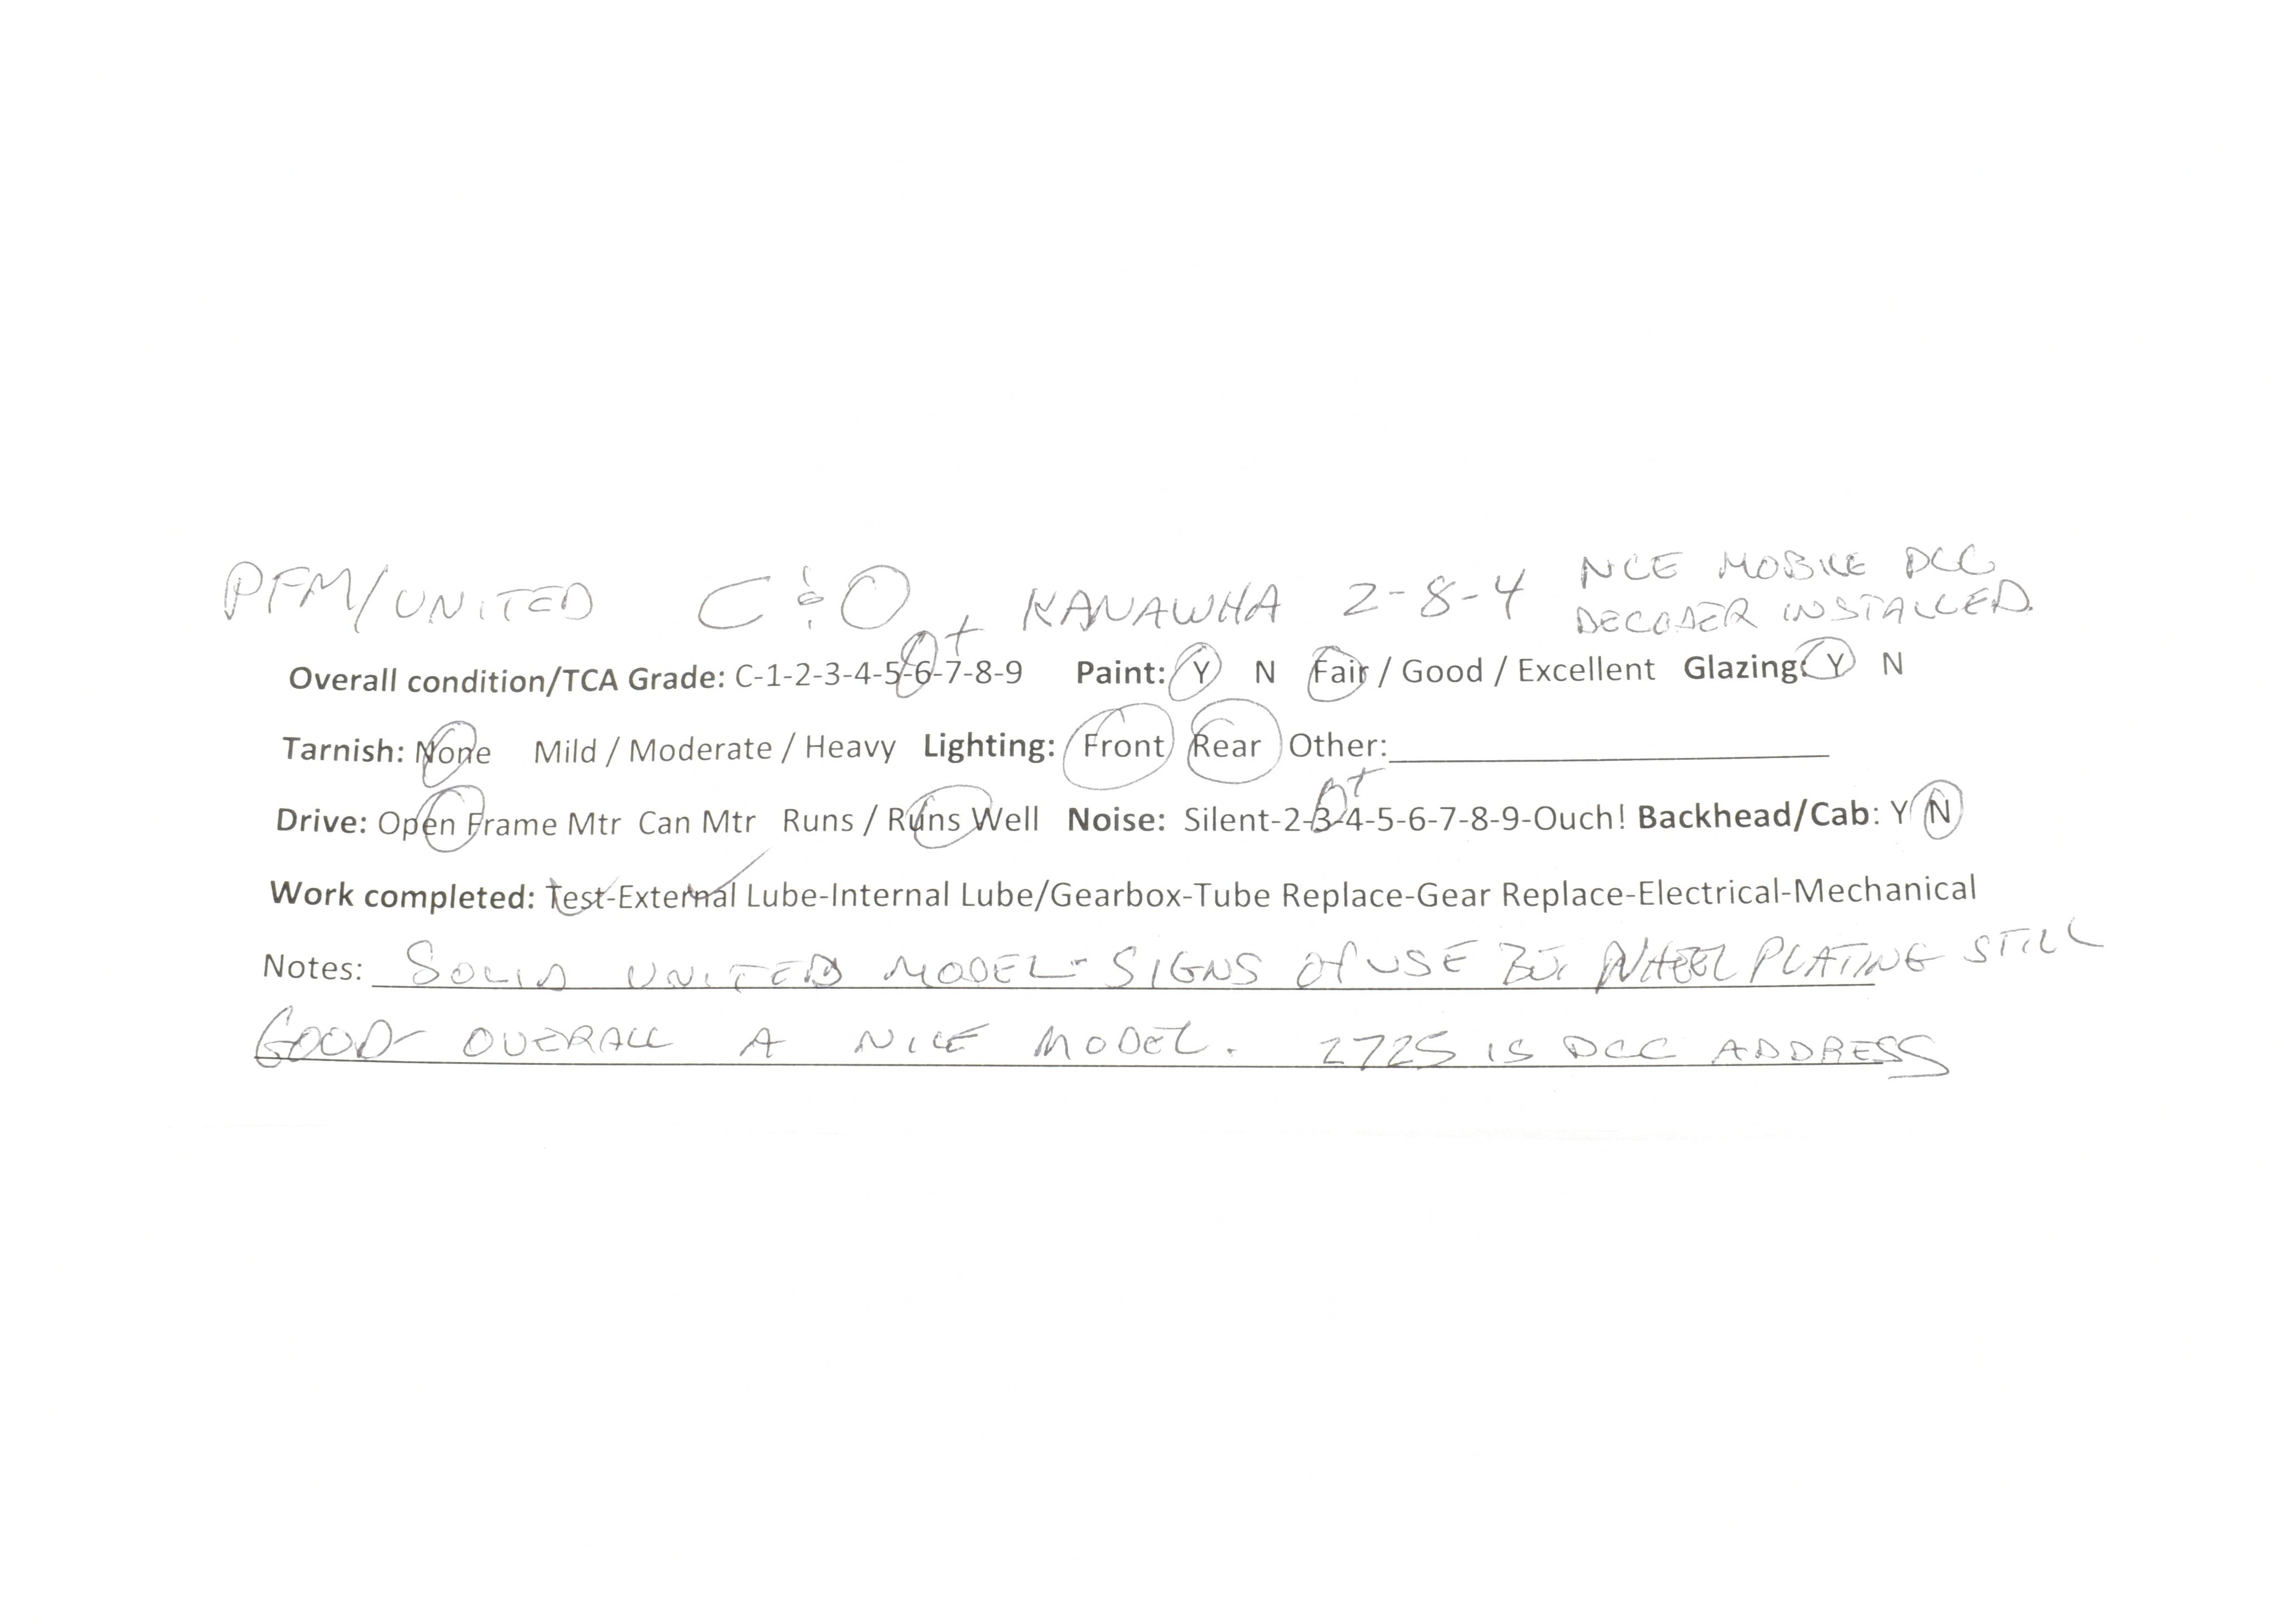 PFM/UNITED C&O KANAWHA 2-8-4 NCE MOBILE DCC
DECODER INSTALLED.
+
Overall condition/TCA Grade: C-1-2-3-4-5-6-7-8-9 Paint: Y N Fair / Good / Excellent Glazing: Y N
Tarnish: None Mild / Moderate / Heavy Lighting: Front Rear Other:
+
Drive: Open Frame Mtr Can Mtr Runs / Runs Well Noise: Silent-2-3-4-5-6-7-8-9-Ouch! Backhead/Cab: Y N
Work completed: Test-External Lube-Internal Lube/Gearbox-Tube Replace-Gear Replace-Electrical-Mechanical
Notes: SOLID UNITED MODEL- SIGNS OF USE BUT WHEEL PLATING STILL
GOOD- OVERALL A NICE MODEL. 2725 IS DCC ADDRESS